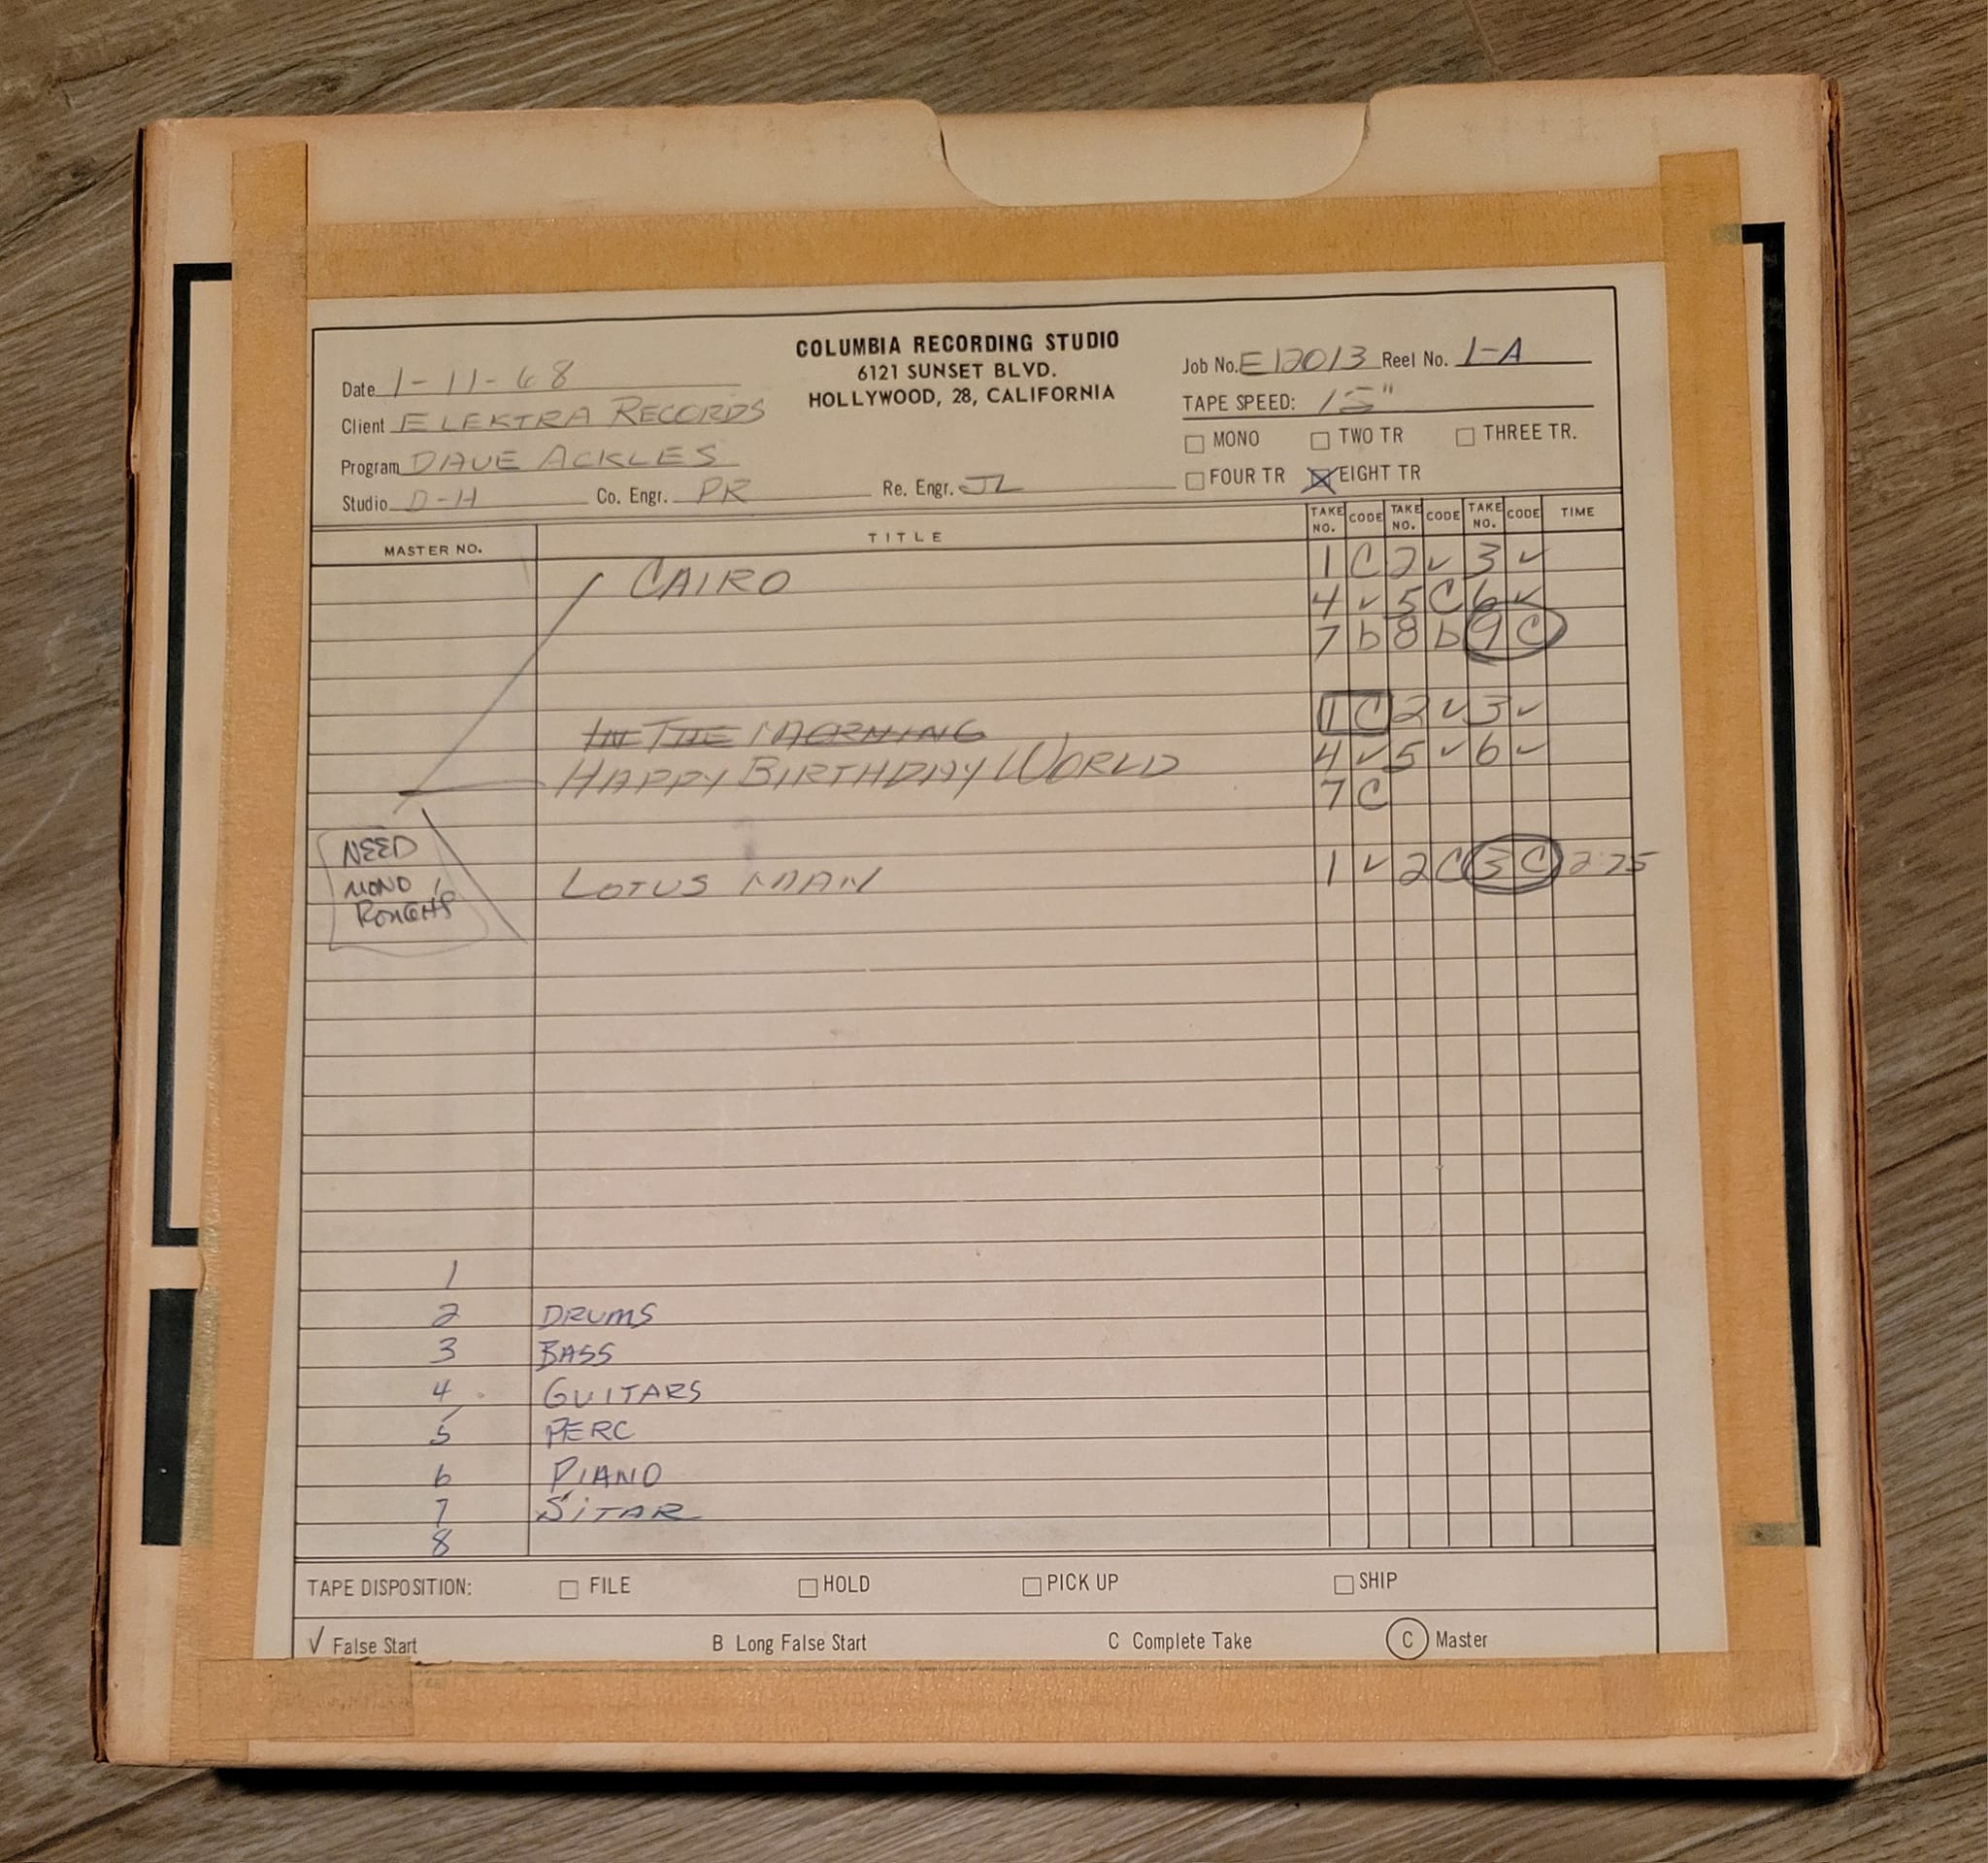 COLUMBIA RECORDING STUDIO
6121 SUNSET BLVD.
HOLLYWOOD, 28, CALIFORNIA
Date 1-11-68
Client ELEKTRA RECORDS
Program DAVE ACKLES
Studio D-H Co. Engr. PR Re. Engr. JL
Job No. E12013 Reel No. 1-A
TAPE SPEED: 15"
MONO TWO TR THREE TR.
FOUR TR EIGHT TR
MASTER NO. TITLE TAKE NO. CODE TAKE NO. CODE TAKE NO. CODE TIME
CAIRO 1 C 2 ✓ 3 ✓
4 ✓ 5 C 6 ✓
7 b 8 b 9 C
IN THE MORNING 1 C 2 ✓ 3 ✓
HAPPY BIRTHDAY WORLD 4 ✓ 5 ✓ 6 ✓
7 C
NEED
MONO
ROUGHS
LOTUS MAN 1 ✓ 2 C 3 C 2:25
1
2 DRUMS
3 BASS
4 GUITARS
5 PERC
6 PIANO
7 SITAR
8
TAPE DISPOSITION: FILE HOLD PICK UP SHIP
✓ False Start B Long False Start C Complete Take C Master